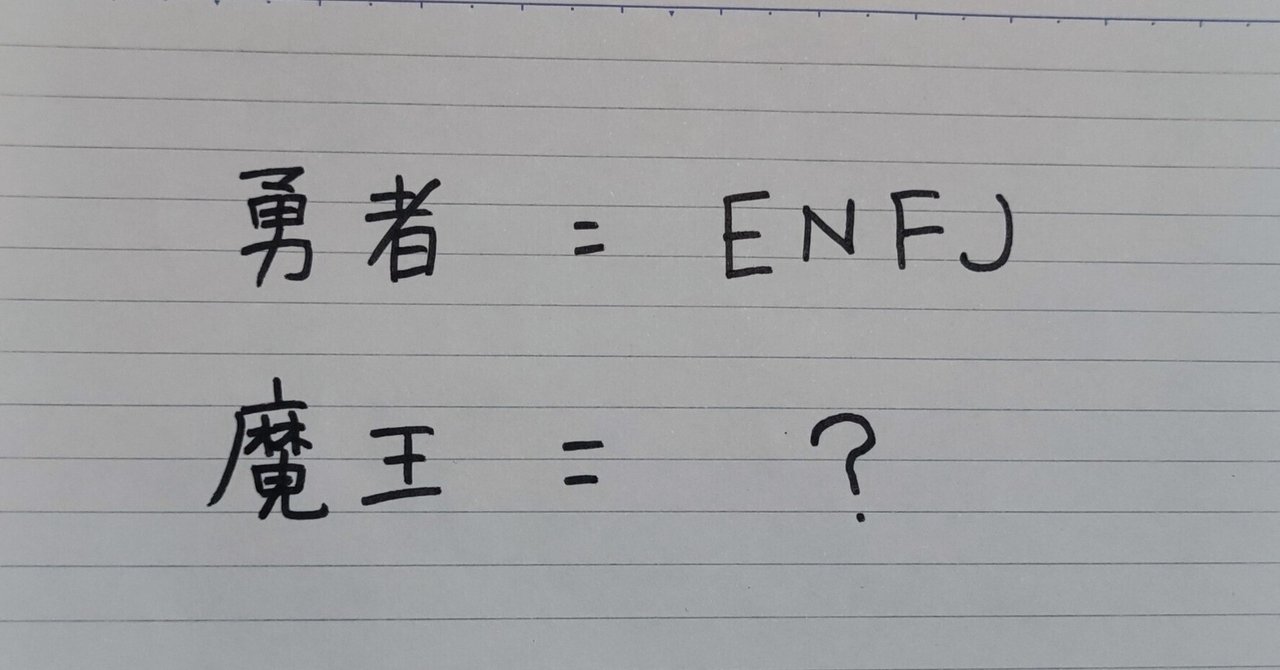 勇者 = ENFJ
魔王 = ?